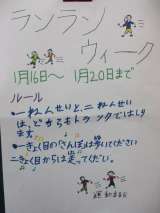 ランラン
ウィーク
1月16日〜 1月20日まで
ルール
・一ねんせいと、二ねんせい
は、どちらもトラックではしり
ます。
・一きょく目の「さんぽ」は歩いてください
二きょく目からは走ってください。